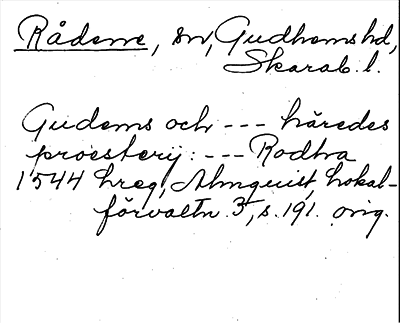 Rådene, sn, Gudhems hd,
Skarab. l.
Gudems och --- häredes
proesterij: --- Rodhra
1544 hreg, Almquist, Lokal-
förvaltn. 3, s. 191. orig.